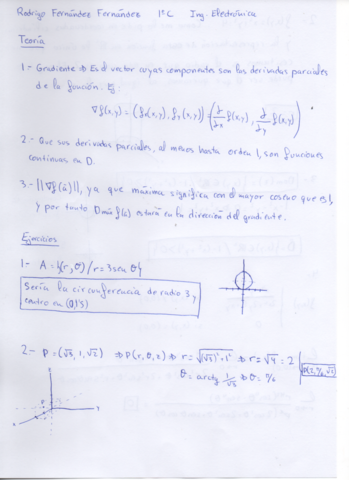 Rodrigo Fernández Fernández 1ºC Ing. Electrónica
Teoría
1.- Gradiente ⇒ Es el vector cuyas componentes son las derivadas parciales
de la función. Ej:
∇f(x,y) = (fx(x,y), fy(x,y)) = (∂/∂x f(x,y), ∂/∂y f(x,y))
2.- Que sus derivadas parciales, al menos hasta orden 1, son funciones
continuas en D.
3.- ||∇f(a)||, ya que máxima significa con el mayor coseno que es 1,
y por tanto D máx f(a) estará en la dirección del gradiente.
Ejercicios
1- A = {(r, θ) / r = 3 sen θ}
Sería la circunferencia de radio 3 y
centro en (0,1'5)
2.- P = (√3, 1, √2) ⇒ P(r, θ, z) ⇒ r = √(√3)²+1² ⇒ r = √4 = 2
θ = arctg 1/√3 ⇒ θ = π/6
P(2, π/6, √2)
x
y
z